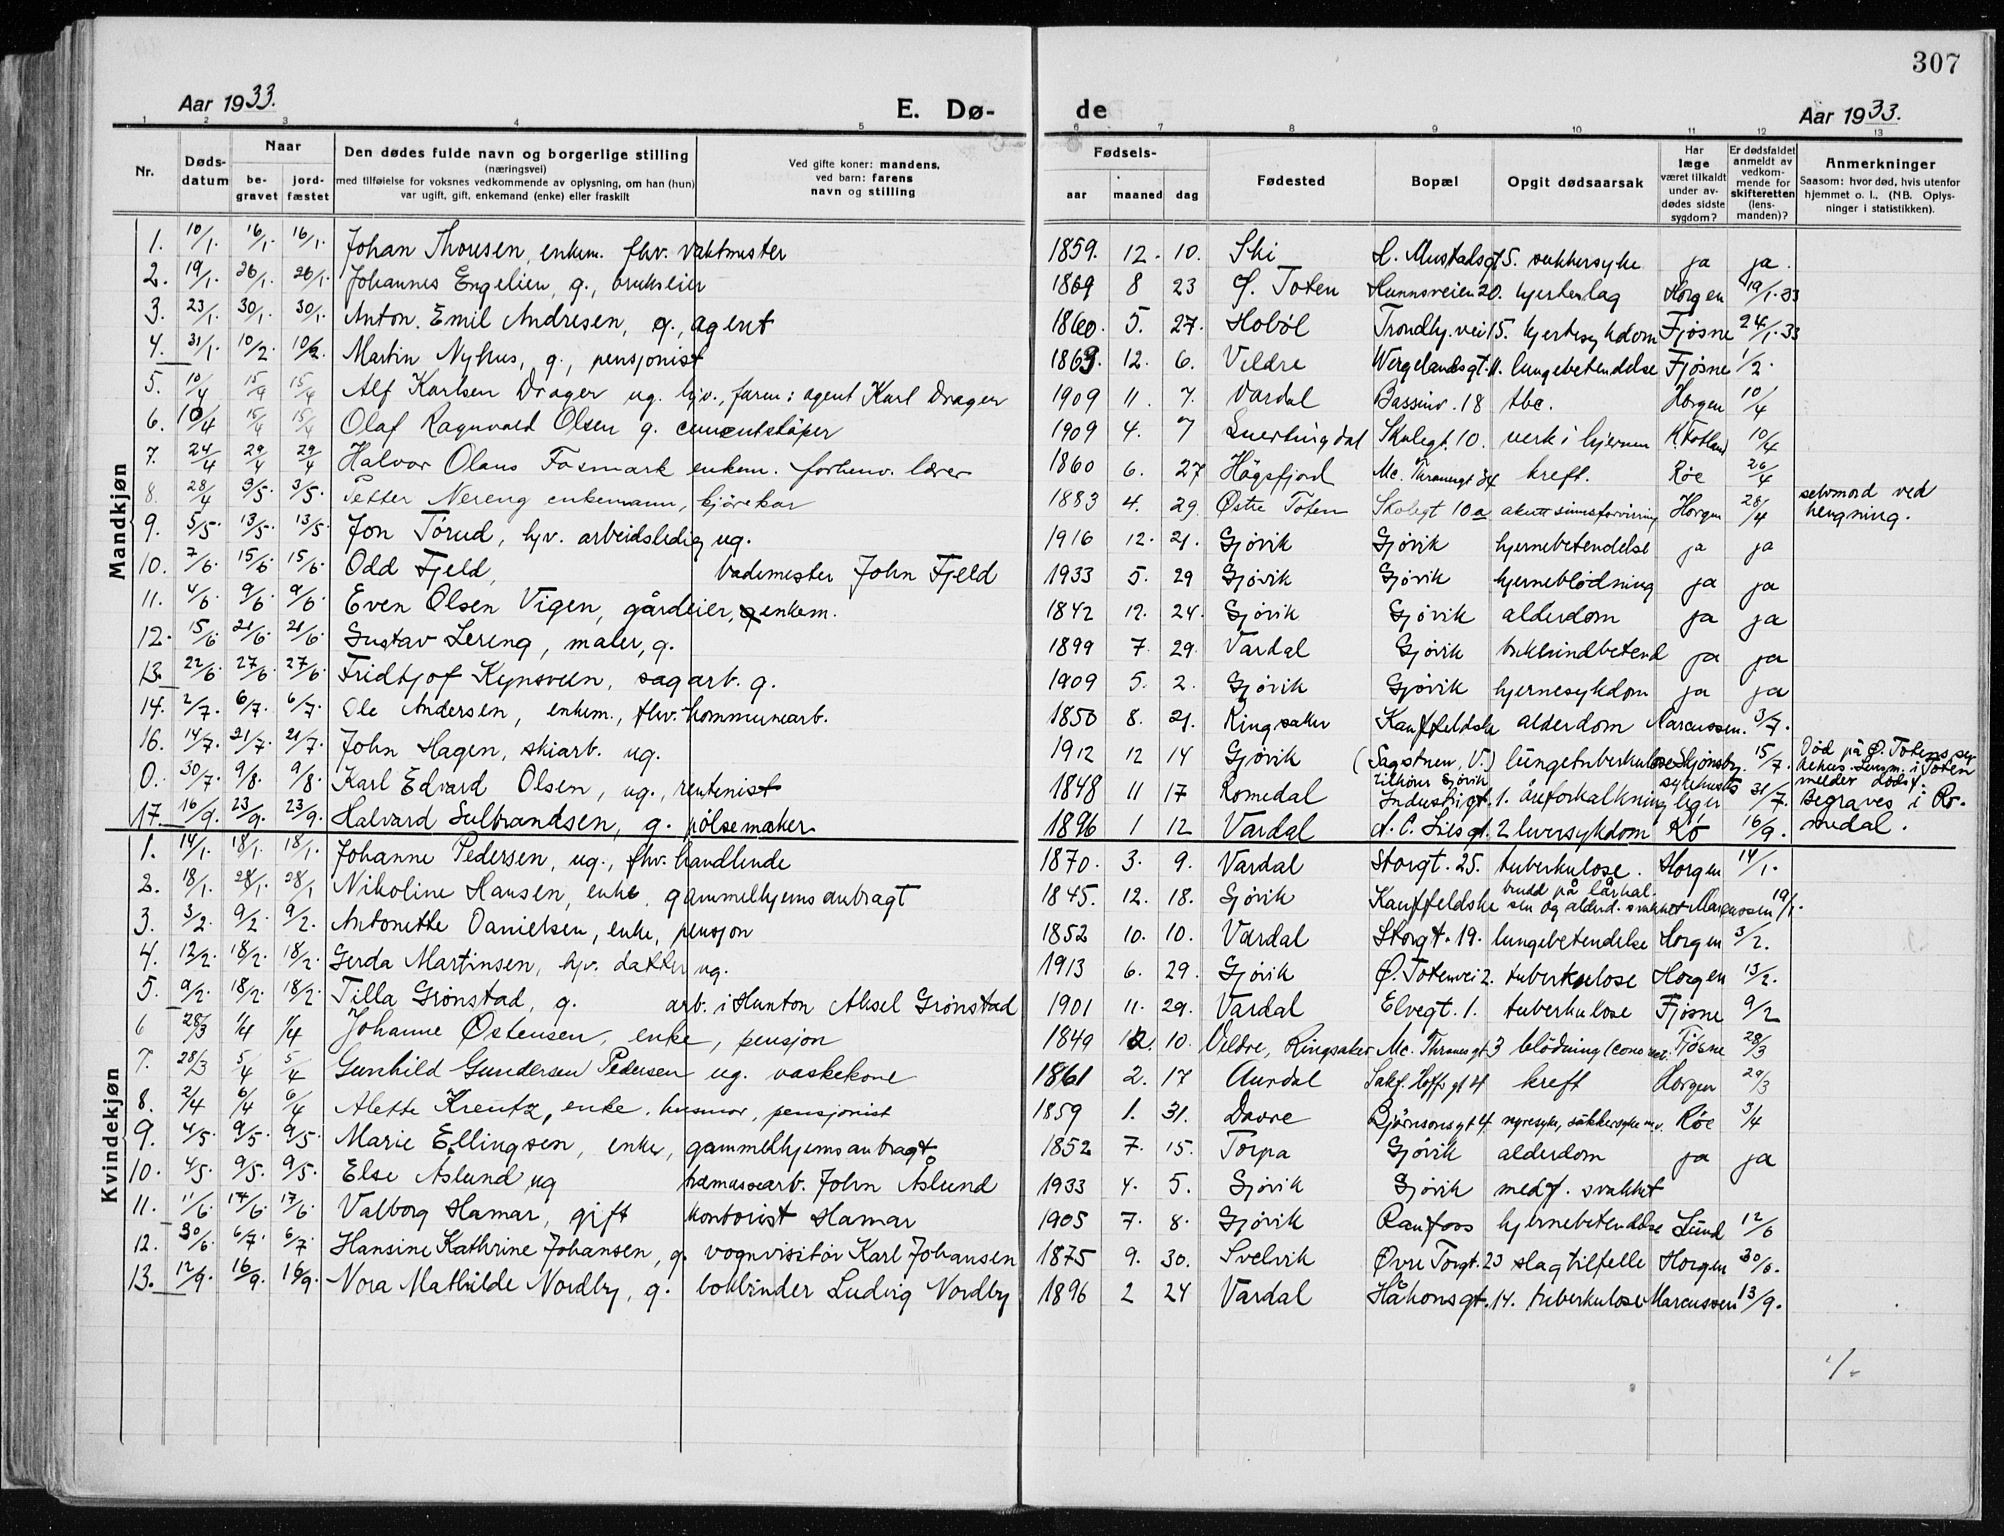 307
Aar 1933.
E. Dø-
de
Aar 1933.
1 2 3 4 5 6 7 8 9 10 11 12 13
Nr.
Døds-datum
Naar
be-gravet
jord-fæstet
Den dødes fulde navn og borgerlige stilling
(næringsvei)
med tilføielse for voksnes vedkommende av oplysning, om han (hun)
var ugift, gift, enkemand (enke) eller fraskilt
Ved gifte koner: mandens,
ved barn: farens
navn og stilling
Fødsels-
aar maaned dag
Fødested
Bopæl
Opgit dødsaarsak
Har læge været tilkaldt under av-dødes sidste sygdom?
Er dødsfaldet anmeldt av vedkom-mende for skifteretten (lens-manden)?
Anmerkninger
Saasom: hvor død, hvis utenfor hjemmet o. l., (NB. Oplys-ninger i statistikken).
Mandkjøn
1. 10/1 16/1 16/1. Johan Thoresen, enkem. fhv. vaktmester 1859. 12. 10. Ski H. Mustadsgt 5. sukkersyke ja ja.
2. 19/1 26/1 26/1. Johannes Engelien, g., brukseier 1869 8 23 Ø. Toten Hunnsveien 20. hjerteslag Horgen 19/1.33
3. 23/1 30/1. 30/1. Anton. Emil Andresen, g., agent 1860. 5. 27. Hobøl Trondhj.vei 15. hjertesykdom Fjøsne 24/1.33
4. 31/1 10/2 10/2. Martin Nyhus, g., pensjonist 1863. 12. 6. Veldre Wergelandsgt. 11. lungebetendelse Fjøsne 1/2.
5. 10/4 15/4 15/4 Alf Karlsen Drager ug. hjv., faren: agent Karl Drager 1909 11. 7. Vardal Bassinv. 18 tbc. Horgen 10/4
6. 10/4 15/4 15/4 Olaf Ragnvald Olsen g. cementstöper 1909 4. 7 Snertingdal Skolegt. 10. verk i hjernen K. Fotland 10/4
7. 24/4 29/4 29/4 Halvor Olaus Fosmark enkem. forhenv. lærer 1860 6. 27 Högsfjord Mc. Thranesgt 34 kreft. Røe 26/4
8. 28/4 3/5. 3/5. Petter Nereng enkemann, kjørekar 1883 4. 29. Østre Toten Skolegt 10a akutt sinnsforvirring Horgen 28/4 selvmord ved hengning.
9. 5/5. 13/5. 13/5. Jon Tørud, hjv. arbeidsledig ug. 1916 12. 21. Gjøvik Gjøvik hjernebetendelse ja ja
10. 7/6. 15/6 15/6. Odd Fjeld, bademester John Fjeld 1933 5. 29 Gjøvik Gjøvik hjerneblödning ja ja
11. 4/6. 9/6. 9/6. Even Olsen Vigen, gårdeier, enkem. 1842 12. 24. Gjøvik Gjøvik alderdom ja ja
12. 15/6. 21/6. 21/6. Gustav Lereng, maler, g. 1899 7. 29. Vardal Gjøvik bukhindbetend ja ja
13. 22/6. 27/6. 27/6. Fridtjof Kynsveen, sagarb. g. 1909 5. 2. Gjøvik Gjøvik hjernesykdom ja ja
14. 2/7. 6/7. 6/7. Ole Andersen, enkem., fhv. kommunearb. 1850 8. 21. Ringsaker Kauffeldske alderdom Marcussen. 3/7.
16. 14/7. 21/7. 21/7. John Hagen, skiarb. ug. 1912 12 14 Gjøvik (Sagstuen, V.) tilhører Gjøvik lungetuberkulose Skjønsby. sykehusets 15/7. Død på Ø. Totens sykehus. Lensm. i Toten melder dødsf.
0. 30/7. 9/8. 9/8. Karl Edvard Olsen, ug., rentenist 1848 11 17 Romedal Industrigt. 1. åreforkalkning lege 31/7. Begraves i Romedal.
17. 16/9. 23/9. 23/9. Halvard Gulbrandsen, g. pölsemaker 1896 1 12 Vardal A. C. Liesgt. 2 leversykdom Rø 16/9.
Kvindekjøn
1. 14/1. 18/1. 18/1. Johanne Pedersen, ug., fhv. handlende 1870. 3. 9. Vardal Storgt. 25. tuberkulose. Horgen 14/1.
2. 18/1. 28/1. 28/1 Nikoline Hansen, enke, gammelhjemsantragt 1845. 12. 18. Gjøvik Kauffeldske brudd på lårhalsen og alderd. svakhet Marcussen 19/1.
3. 3/2. 9/2. 9/2. Antonette Danielsen, enke, pensjon 1852 10. 10. Vardal Storgt. 19. lungebetendelse Horgen 3/2.
4. 12/2. 18/2. 18/2. Gerda Martinsen, hjv. datter ug. 1913 6. 29. Gjøvik Ø. Totenvei 2. tuberkulose Horgen 13/2.
5. 9/2. 18/2. 18/2. Tilla Grønstad, g. arb. i Hunton Aksel Grønstad 1901 11. 29. Vardal Elvegt. 1. tuberkulose Fjøsne 9/2
6 28/3 1/4 1/4 Johanne Østensen, enke, pensjon 1849 12. 10. Veldre, Ringsaker Mc. Thranesgt 3 blödning Fjøsne 28/3
7. 28/3 5/4 5/4 Gunhild Gundersen Pedersen ug. vaskekone 1861 2. 17 Aurdal Sakf. Hoffsgt 4 kreft Horgen 29/3
8. 2/4 6/4 6/4 Alette Kreutz, enke. husmor, pensjonist 1859 1. 31. Dovre Bjørnsonsgt 4 nyresyke, sukkersyke m.v. Røe 3/4
9. 4/5. 9/5. 9/5. Marie Ellingsen, enke, gammelhjemsantragt 1852 7. 15. Torpa Gjøvik alderdom ja ja
10. 4/5. 9/5. 9/5. Else Åslund ug hermasearb. John Åslund 1933 4. 5. Gjøvik Gjøvik medf. svakhet
11. 11/6. 17/6. 17/6. Valborg Hamar, gift kontorist Hamar 1905 7. 8. Gjøvik Raufoss hjernebetendelse Lund 12/6
12. 30/6. 6/7. 6/7. Hansine Kathrine Johansen, g. vognvisitör Karl Johansen 1875 9. 30. Svelvik Øvre Torgt. 23 slagtilfelle Horgen 30/6.
13. 12/9. 16/9. 16/9. Nora Mathilde Nordby, g. bokbinder Ludvig Nordby 1896 2 24 Vardal Håkonsgt. 14. tuberkulose Marcussen 13/9.